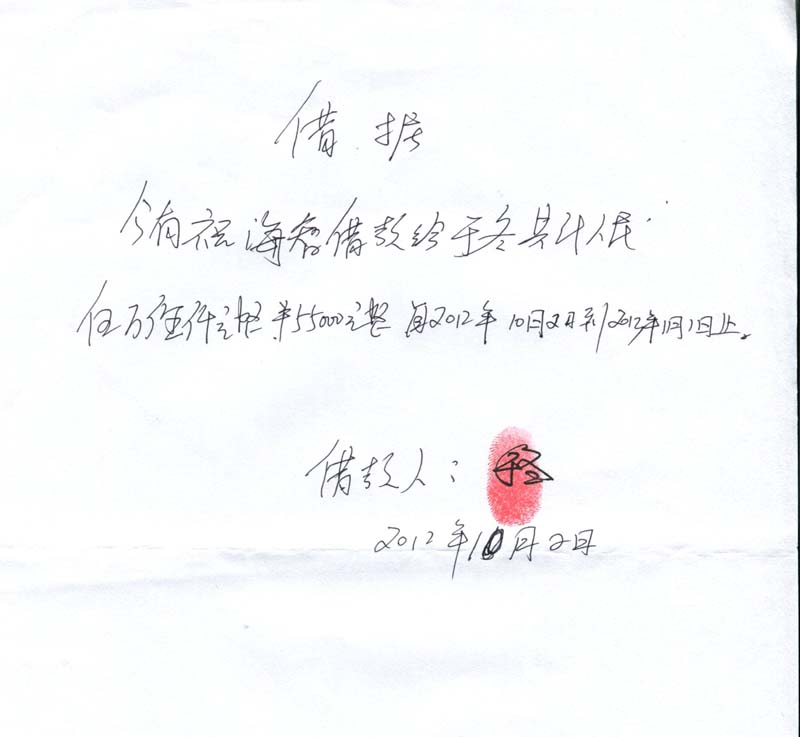 借据
今有祝海智借款给于冬共计人民
伍万伍仟元整 ¥55000元整 自2012年10月2日到2012年11月1日止。
借款人：
2012年10月2日